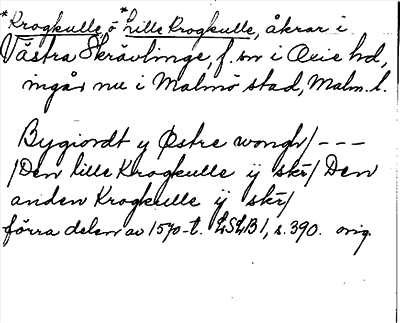 *Krogkulle, ö *Lille Krogkulle, åkrar i
Västra Skrävlinge, f. sn i Oxie hd,
ingår nu i Malmö stad, Malm. l.
Bygiordt y Østre wongh/ - - -
/Den lille Krogkulle ij skr/ Den
anden Krogkulle ij skr/
förra delen av 1570-t. LSLB 1, s. 390. orig.